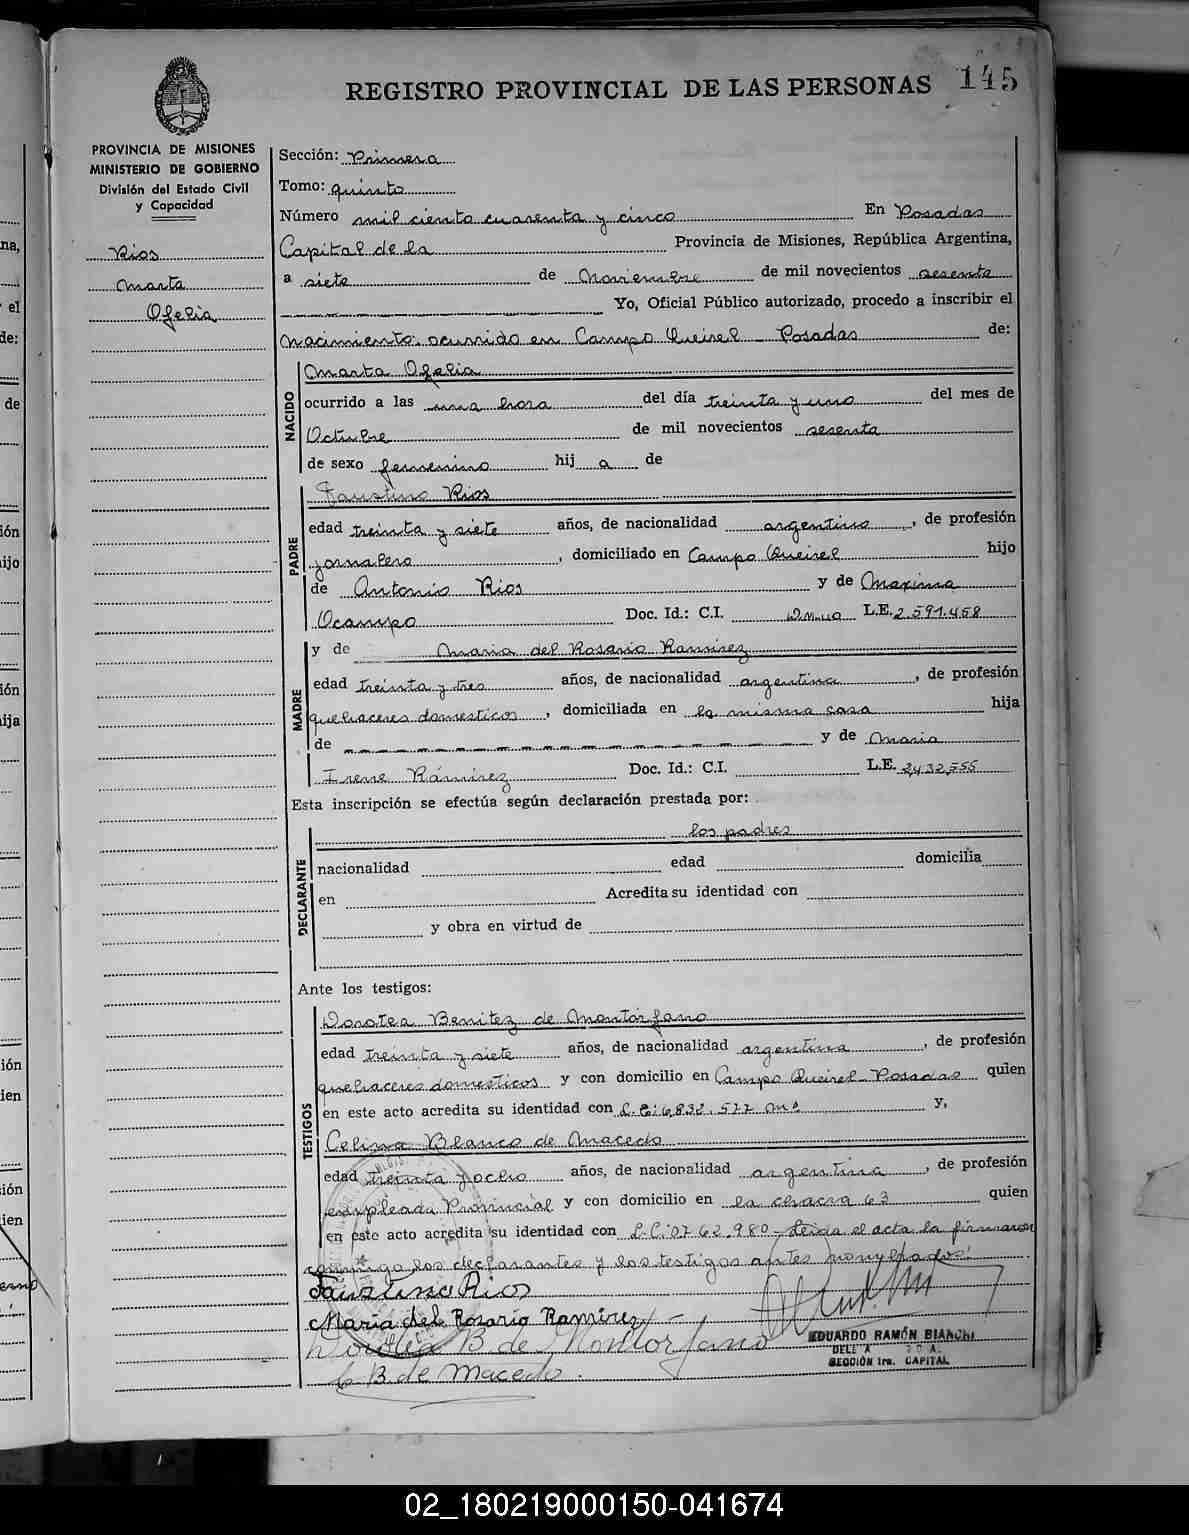 REGISTRO PROVINCIAL DE LAS PERSONAS 145
PROVINCIA DE MISIONES
MINISTERIO DE GOBIERNO
División del Estado Civil
y Capacidad
Rios
Marta
Ofelia
Sección: Primera
Tomo: quinto
Número mil ciento cuarenta y cinco En Posadas
Capital de la Provincia de Misiones, República Argentina,
a siete de Noviembre de mil novecientos sesenta
Yo, Oficial Público autorizado, procedo a inscribir el
Nacimiento ocurrido en Campo Queirel - Posadas de:
NACIDO
Marta Ofelia
ocurrido a las una hora del día treinta y uno del mes de
Octubre de mil novecientos sesenta
de sexo femenino hij a de
PADRE
Faustino Rios
edad treinta y siete años, de nacionalidad argentino, de profesión
jornalero, domiciliado en Campo Queirel hijo
de Antonio Rios y de Maxima
Ocampo Doc. Id.: C.I. L.E. 2.591.458
MADRE
y de Maria del Rosario Ramirez
edad treinta y tres años, de nacionalidad argentina, de profesión
quehaceres domesticos, domiciliada en la misma casa hija
de y de Maria
Irene Rámirez Doc. Id.: C.I. L.E. 2,432,555
Esta inscripción se efectúa según declaración prestada por:
DECLARANTE
los padres
nacionalidad edad domicilia
en Acredita su identidad con
y obra en virtud de
Ante los testigos:
TESTIGOS
Dorotea Benitez de Montorfano
edad treinta y siete años, de nacionalidad argentina, de profesión
quehaceres domesticos y con domicilio en Campo Queirel - Posadas quien
en este acto acredita su identidad con L.C: 6832.577 y,
Celina Blanco de Macedo
edad treinta y ocho años, de nacionalidad argentina, de profesión
empleada Provincial y con domicilio en la chacra 63 quien
en este acto acredita su identidad con L.C: 0762.980 - Leida el acta la firmaron
conmigo los declarantes y los testigos antes nombrados:
Faustino Rios
Maria del Rosario Ramirez -
Dorotea B de Montorfano
C B. de Macedo.
EDUARDO RAMÓN BIANCHI
SECCIÓN 1ra. CAPITAL
02_180219000150-041674